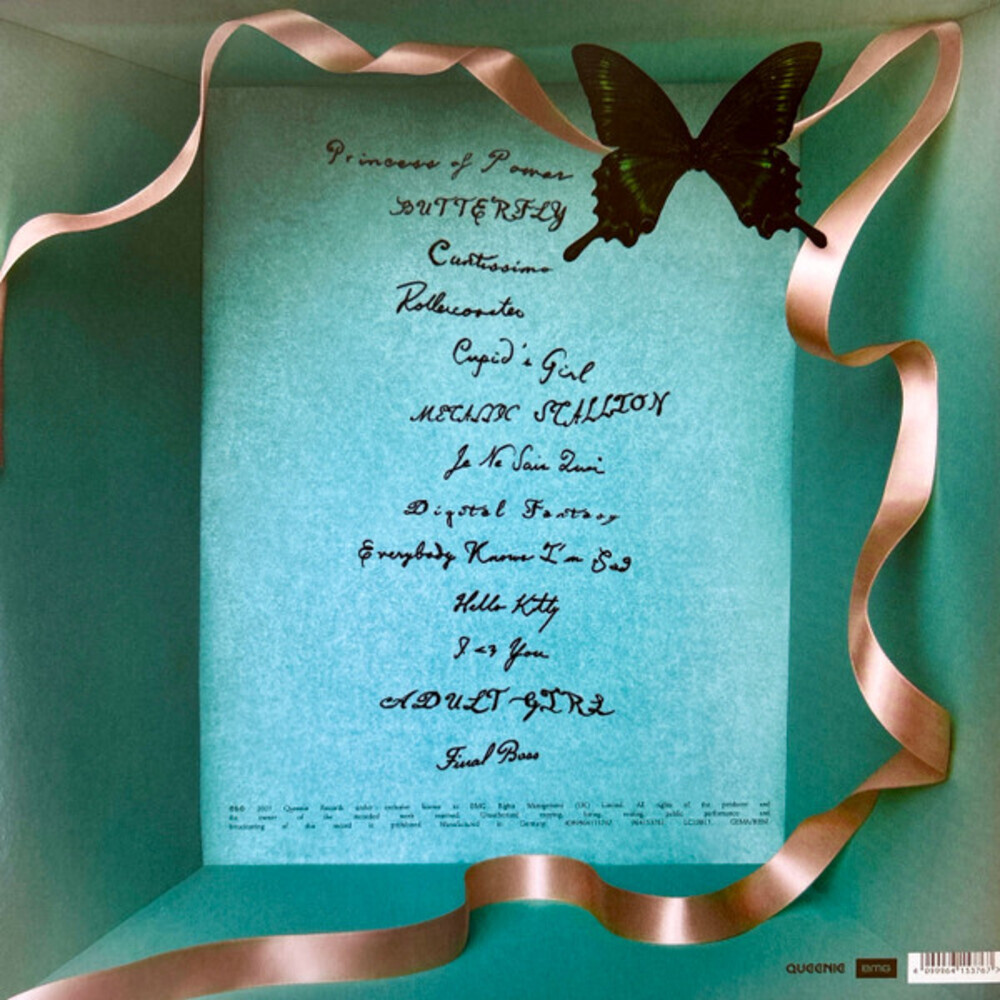 Princess of Power
BUTTERFLY
Cuntissimo
Rollercoaster
Cupid's Girl
METALLIC STALLION
Je Ne Sais Quoi
Digital Fantasy
Everybody Knows I'm Sad
Hello Kitty
I <3 You
ADULT GIRL
Final Boss
Queenie Records under exclusive licence to BMG Rights Management (UK) Limited. All rights of the producer and
the owner of the recorded work reserved. Unauthorised copying, hiring, public performance and
broadcasting of this record is prohibited. Manufactured in Germany.
QUEENIE BMG
4 099964 153767